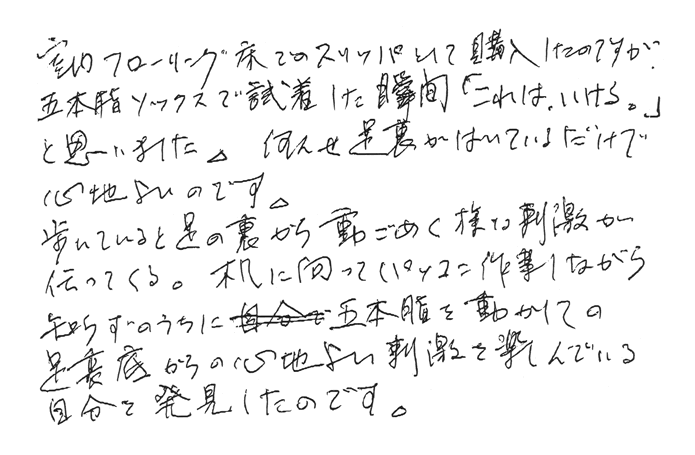 室内フローリング床でのスリッパとして購入したのですが、
五本脂ソックスで試着した瞬間「これは、いける。」
と思いました。何んせ足裏がはいているだけで
心地よいのです。
歩いていると足の裏から動ごめく様な刺激が
伝ってくる。机に向ってパソコン作業しながら
知らずのうちに五本脂を動かしての
足裏底からの心地よい刺激を楽しんでいる
自分を発見したのです。